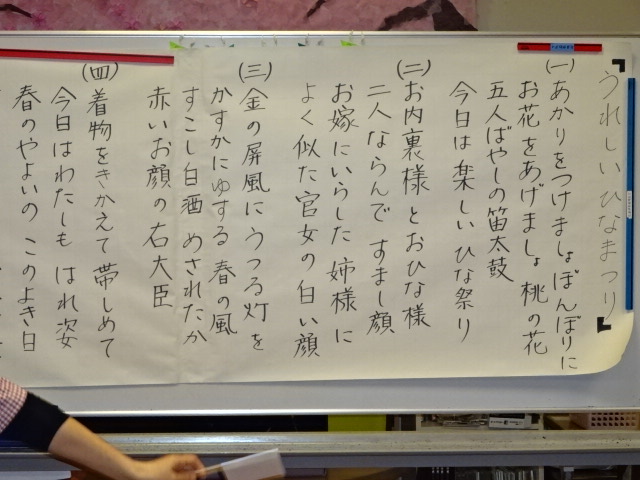 うれしいひなまつり
(一)あかりをつけましょぼんぼりに
お花をあげましょ桃の花
五人ばやしの笛太鼓
今日は楽しいひな祭り
(二)お内裏様とおひな様
二人ならんですまし顔
お嫁にいらした姉様に
よく似た官女の白い顔
(三)金の屏風にうつる灯を
かすかにゆする春の風
すこし白酒めされたか
赤いお顔の右大臣
(四)着物をきかえて帯しめて
今日はわたしもはれ姿
春のやよいのこのよき日